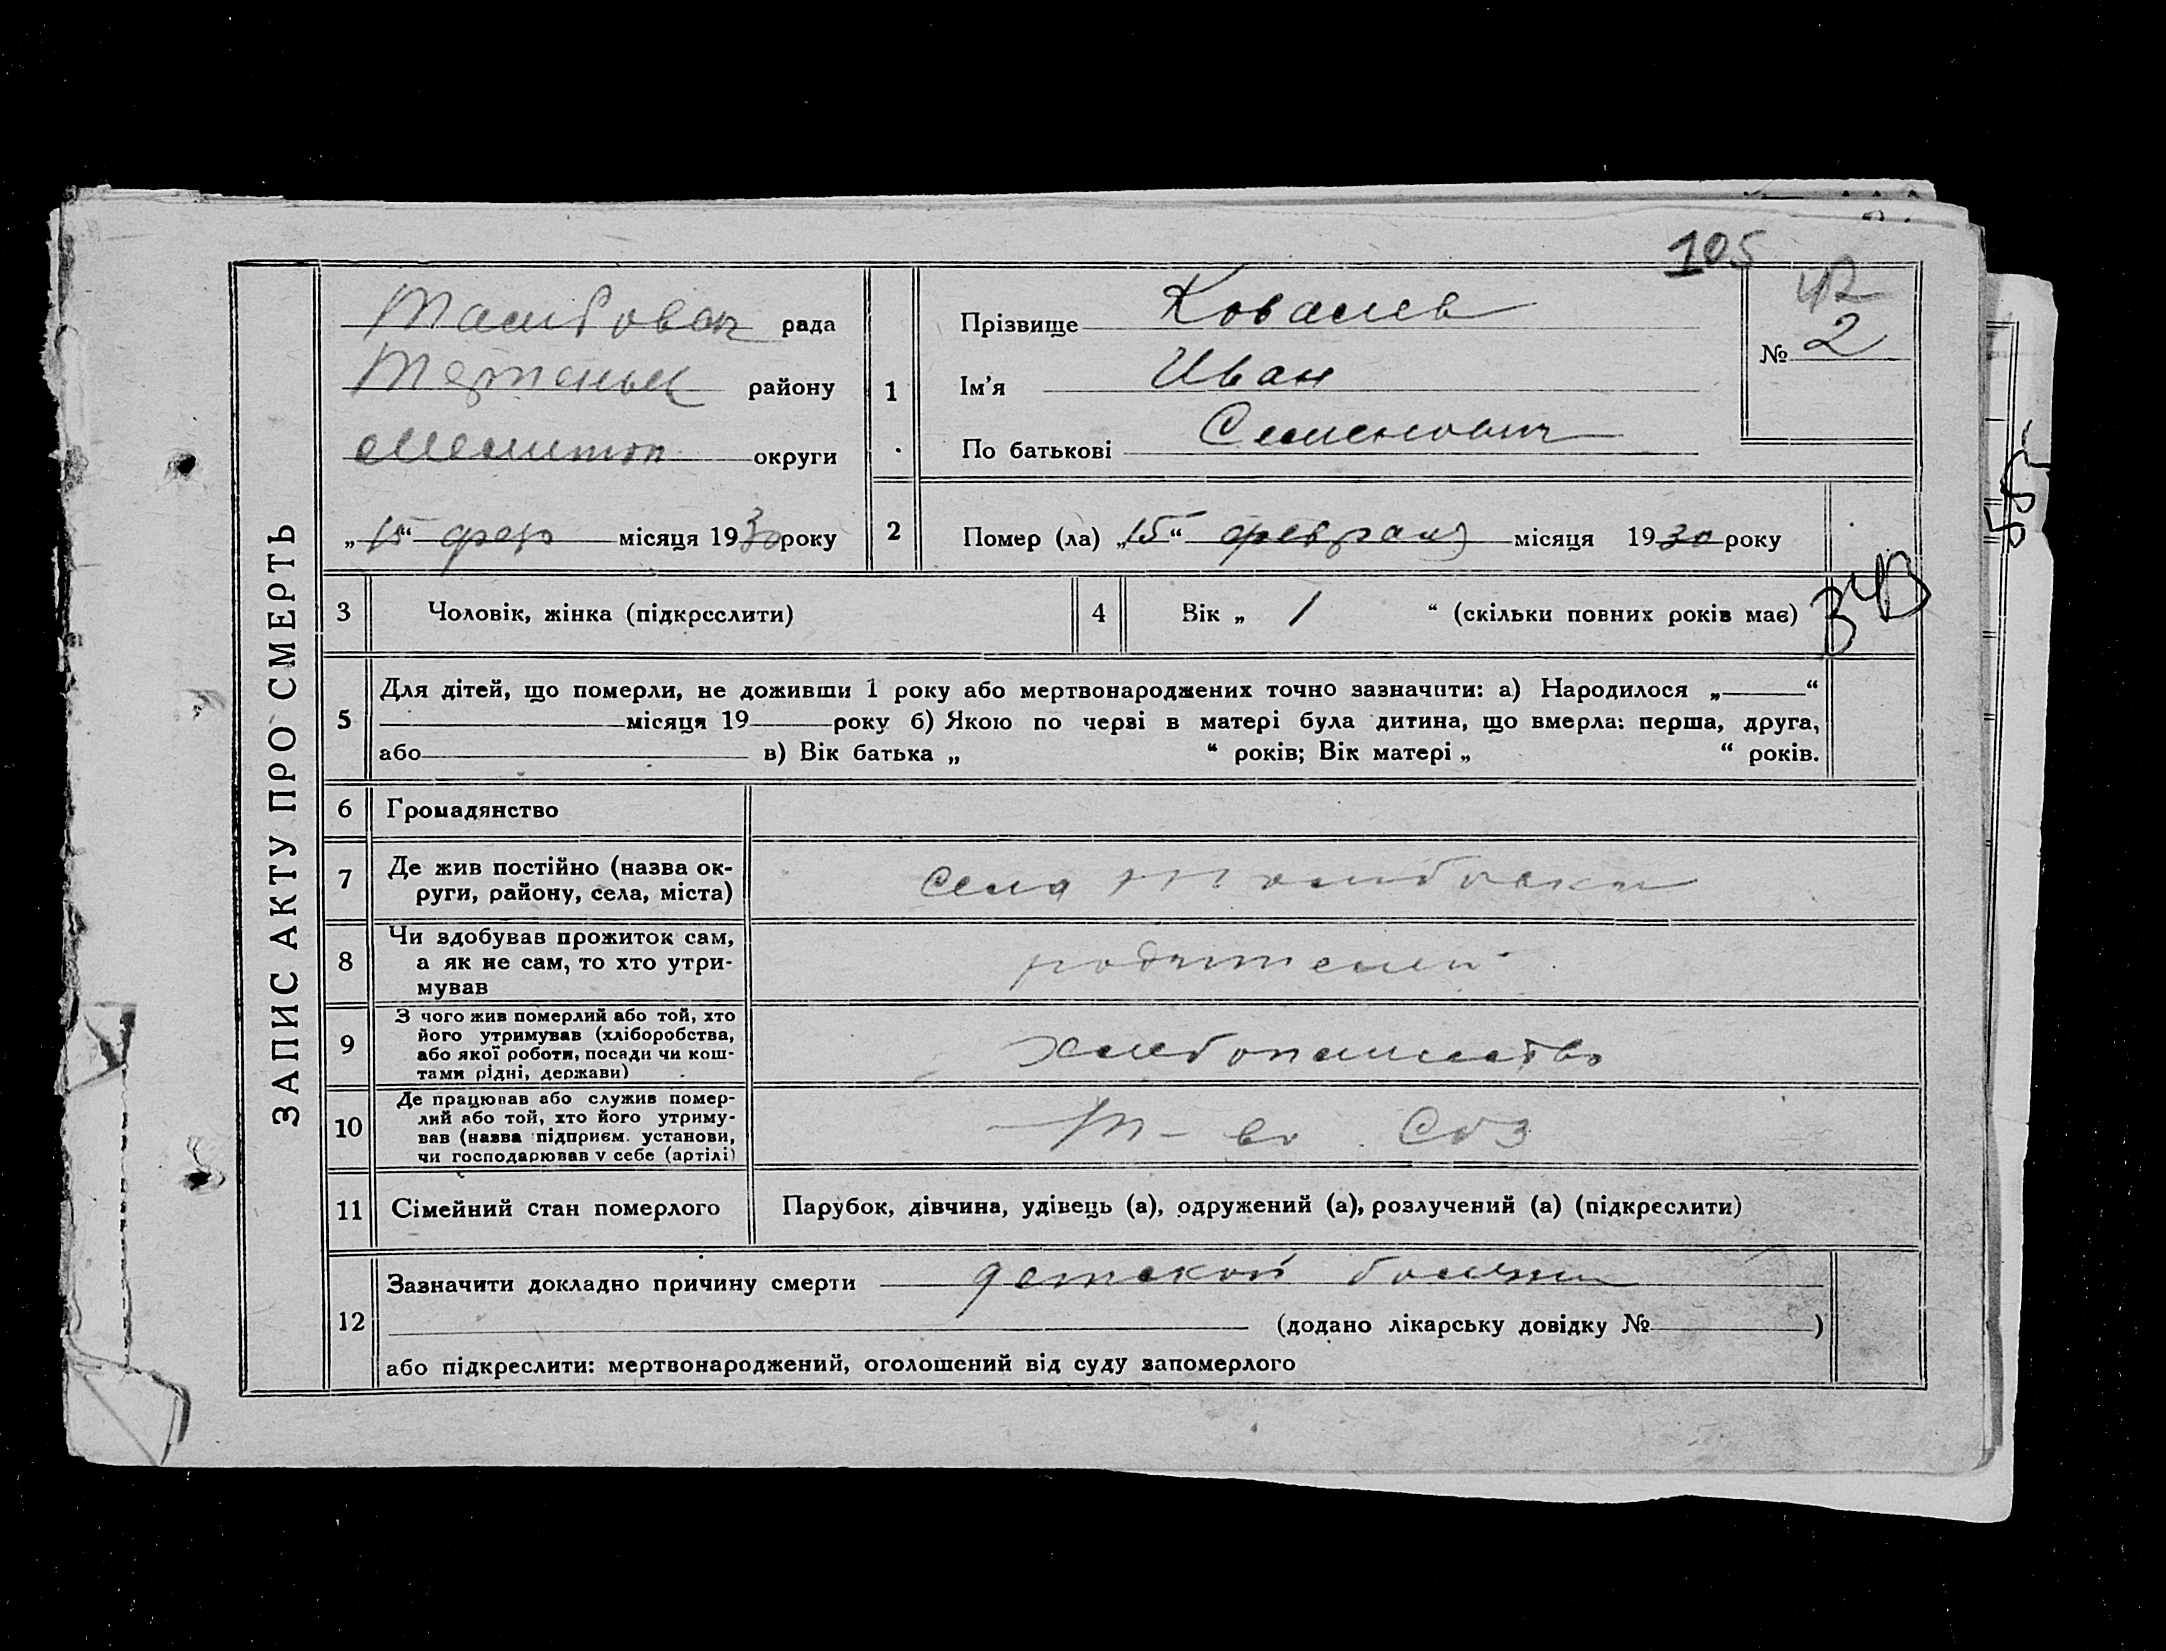 105
ЗАПИС АКТУ ПРО СМЕРТЬ
Тамбовск рада
району
Мелитоп округи
„15“ февр місяця 1930 року
1
Прізвище Ковалев
Ім'я Иван
По батькові Семенович
42
№ 2
2
Помер (ла) „15“ февраля місяця 1930 року
3
Чоловік, жінка (підкреслити)
4
Вік „ 1 “ (скільки повних років має)
5
Для дітей, що померли, не доживши 1 року або мертвонароджених точно зазначити: а) Народилося „ “
місяця 19 року б) Якою по черзі в матері була дитина, що вмерла: перша, друга,
або в) Вік батька „ “ років; Вік матері „ “ років.
6
Громадянство
7
Де жив постійно (назва ок-
руги, району, села, міста)
села Тамбовки
8
Чи здобував прожиток сам,
а як не сам, то хто утри-
мував
родителей
9
З чого жив померлий або той, хто
його утримував (хліборобства,
або якої роботи, посади чи кош-
тами рідні, держави)
хлебопашество
10
Де працював або служив помер-
лий або той, хто його утриму-
вав (назва підприєм. установи,
чи господарював у себе (артілі)
Т-во СОЗ
11
Сімейний стан померлого
Парубок, дівчина, удівець (а), одружений (а), розлучений (а) (підкреслити)
12
Зазначити докладно причину смерти детской
(додано лікарську довідку № )
або підкреслити: мертвонароджений, оголошений від суду запомерлого